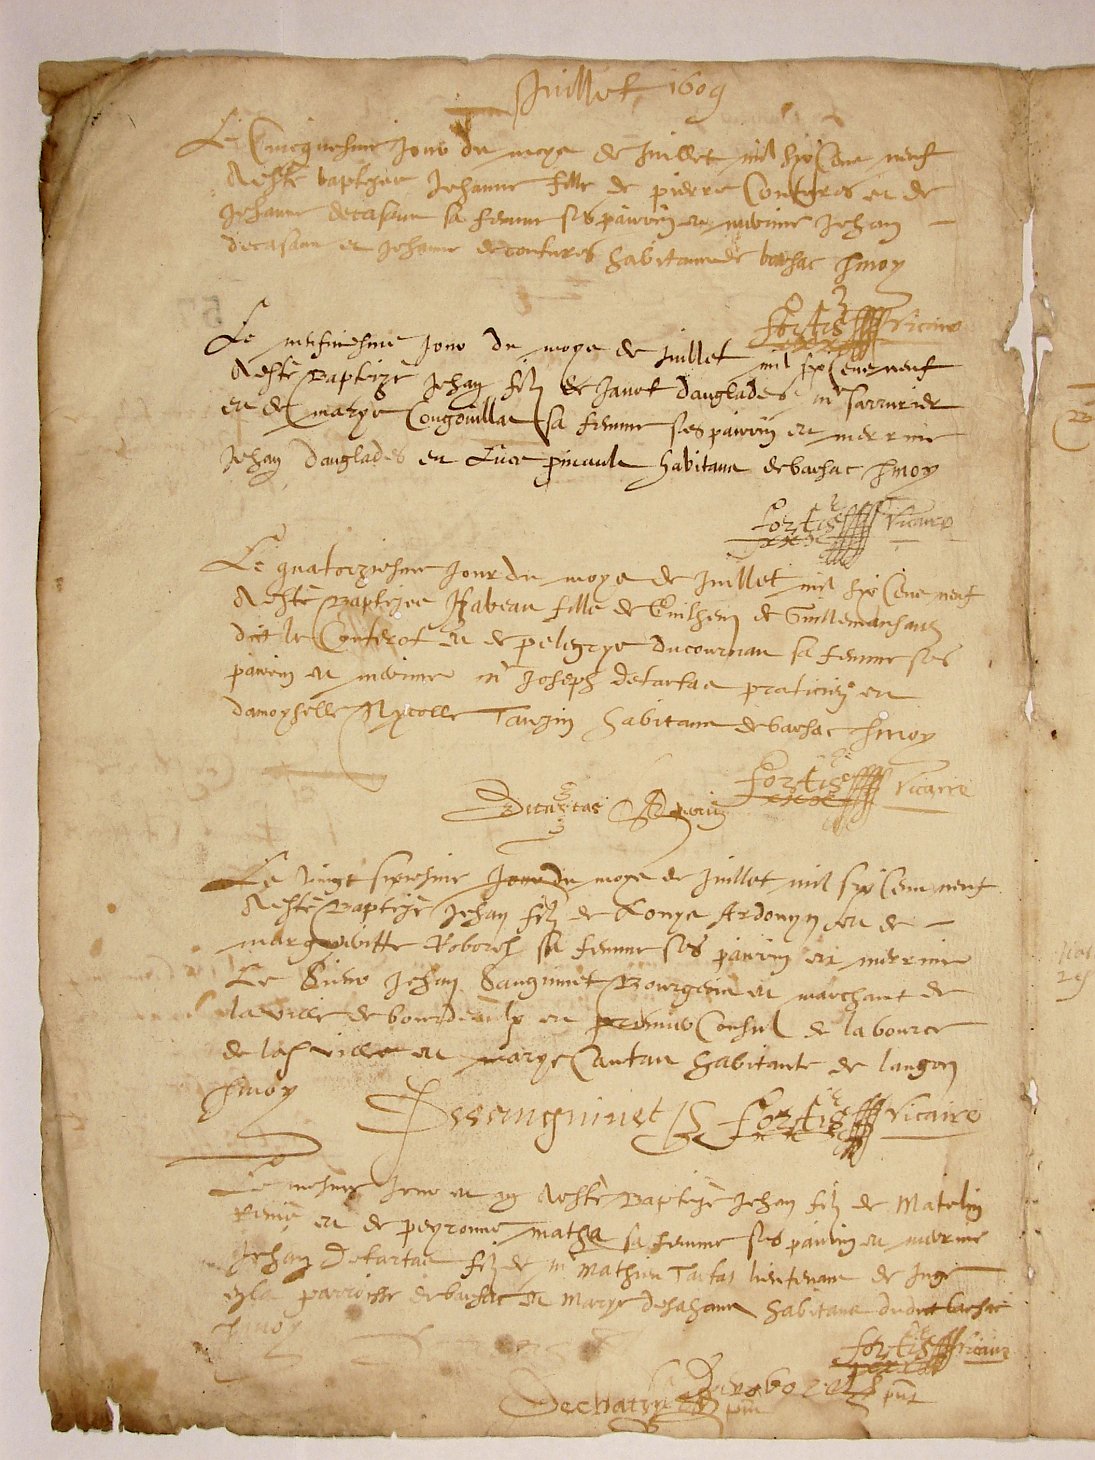 Juillet 1609
Le Cincquesme Jour du moys de Juillet mil six Cens neuf
A esté baptizee Jehanne fille de pierre Contgros et de
Jehanne decasaux sa femme ses pairrin et merrine Jehan
decasaux et Jehanne de contures habitans de barsac p moy
Fortis vicaire
Le neufviesme Jour du moys de Juillet mil six Cens neuf
A esté Baptizé Jehan filz de Janot danglades me sarrurier
et de marye Cougouillat sa femme ses pairrin et merrine
Jehan danglades et pinault habitans de barsac p moy
Fortis vicaire
Le quatorziesme Jour du moys de Juillet mil six Cens neuf
A esté Baptizee Isabeau fille de Guilhem de
dict le et de pelegrye ducournau sa femme ses
pairrin et merrine me Joseph detartas praticien et
damoyselle Nycolle Tauzin habitans de barsac p moy
Fortis vicaire
Detartas
Le vingt sixiesme Jour du moys de Juillet mil six Cens neuf
A esté Baptizé Jehan filz de Ardouyn et de
margueritte Roborel sa femme ses pairrin et merrine
Le Sieur Jehan Sanguinet Bourgeois et marchant de
la ville de bourdeaulx et premier Consul de la bource
de lad ville et marye Cantau habitante de langon
p moy
Dessanguinet Fortis vicaire
Le mesme Jour et an A esté Baptizé Jehan filz de Matelin
et de peyronne matha sa femme ses pairrin et merrine
Jehan Detartas filz de me Mathieu Tartas lieutenant de Juge
en la parroisse de barsac et Marye habitans dudict barsac
p moy
Fortis vicaire
pnt